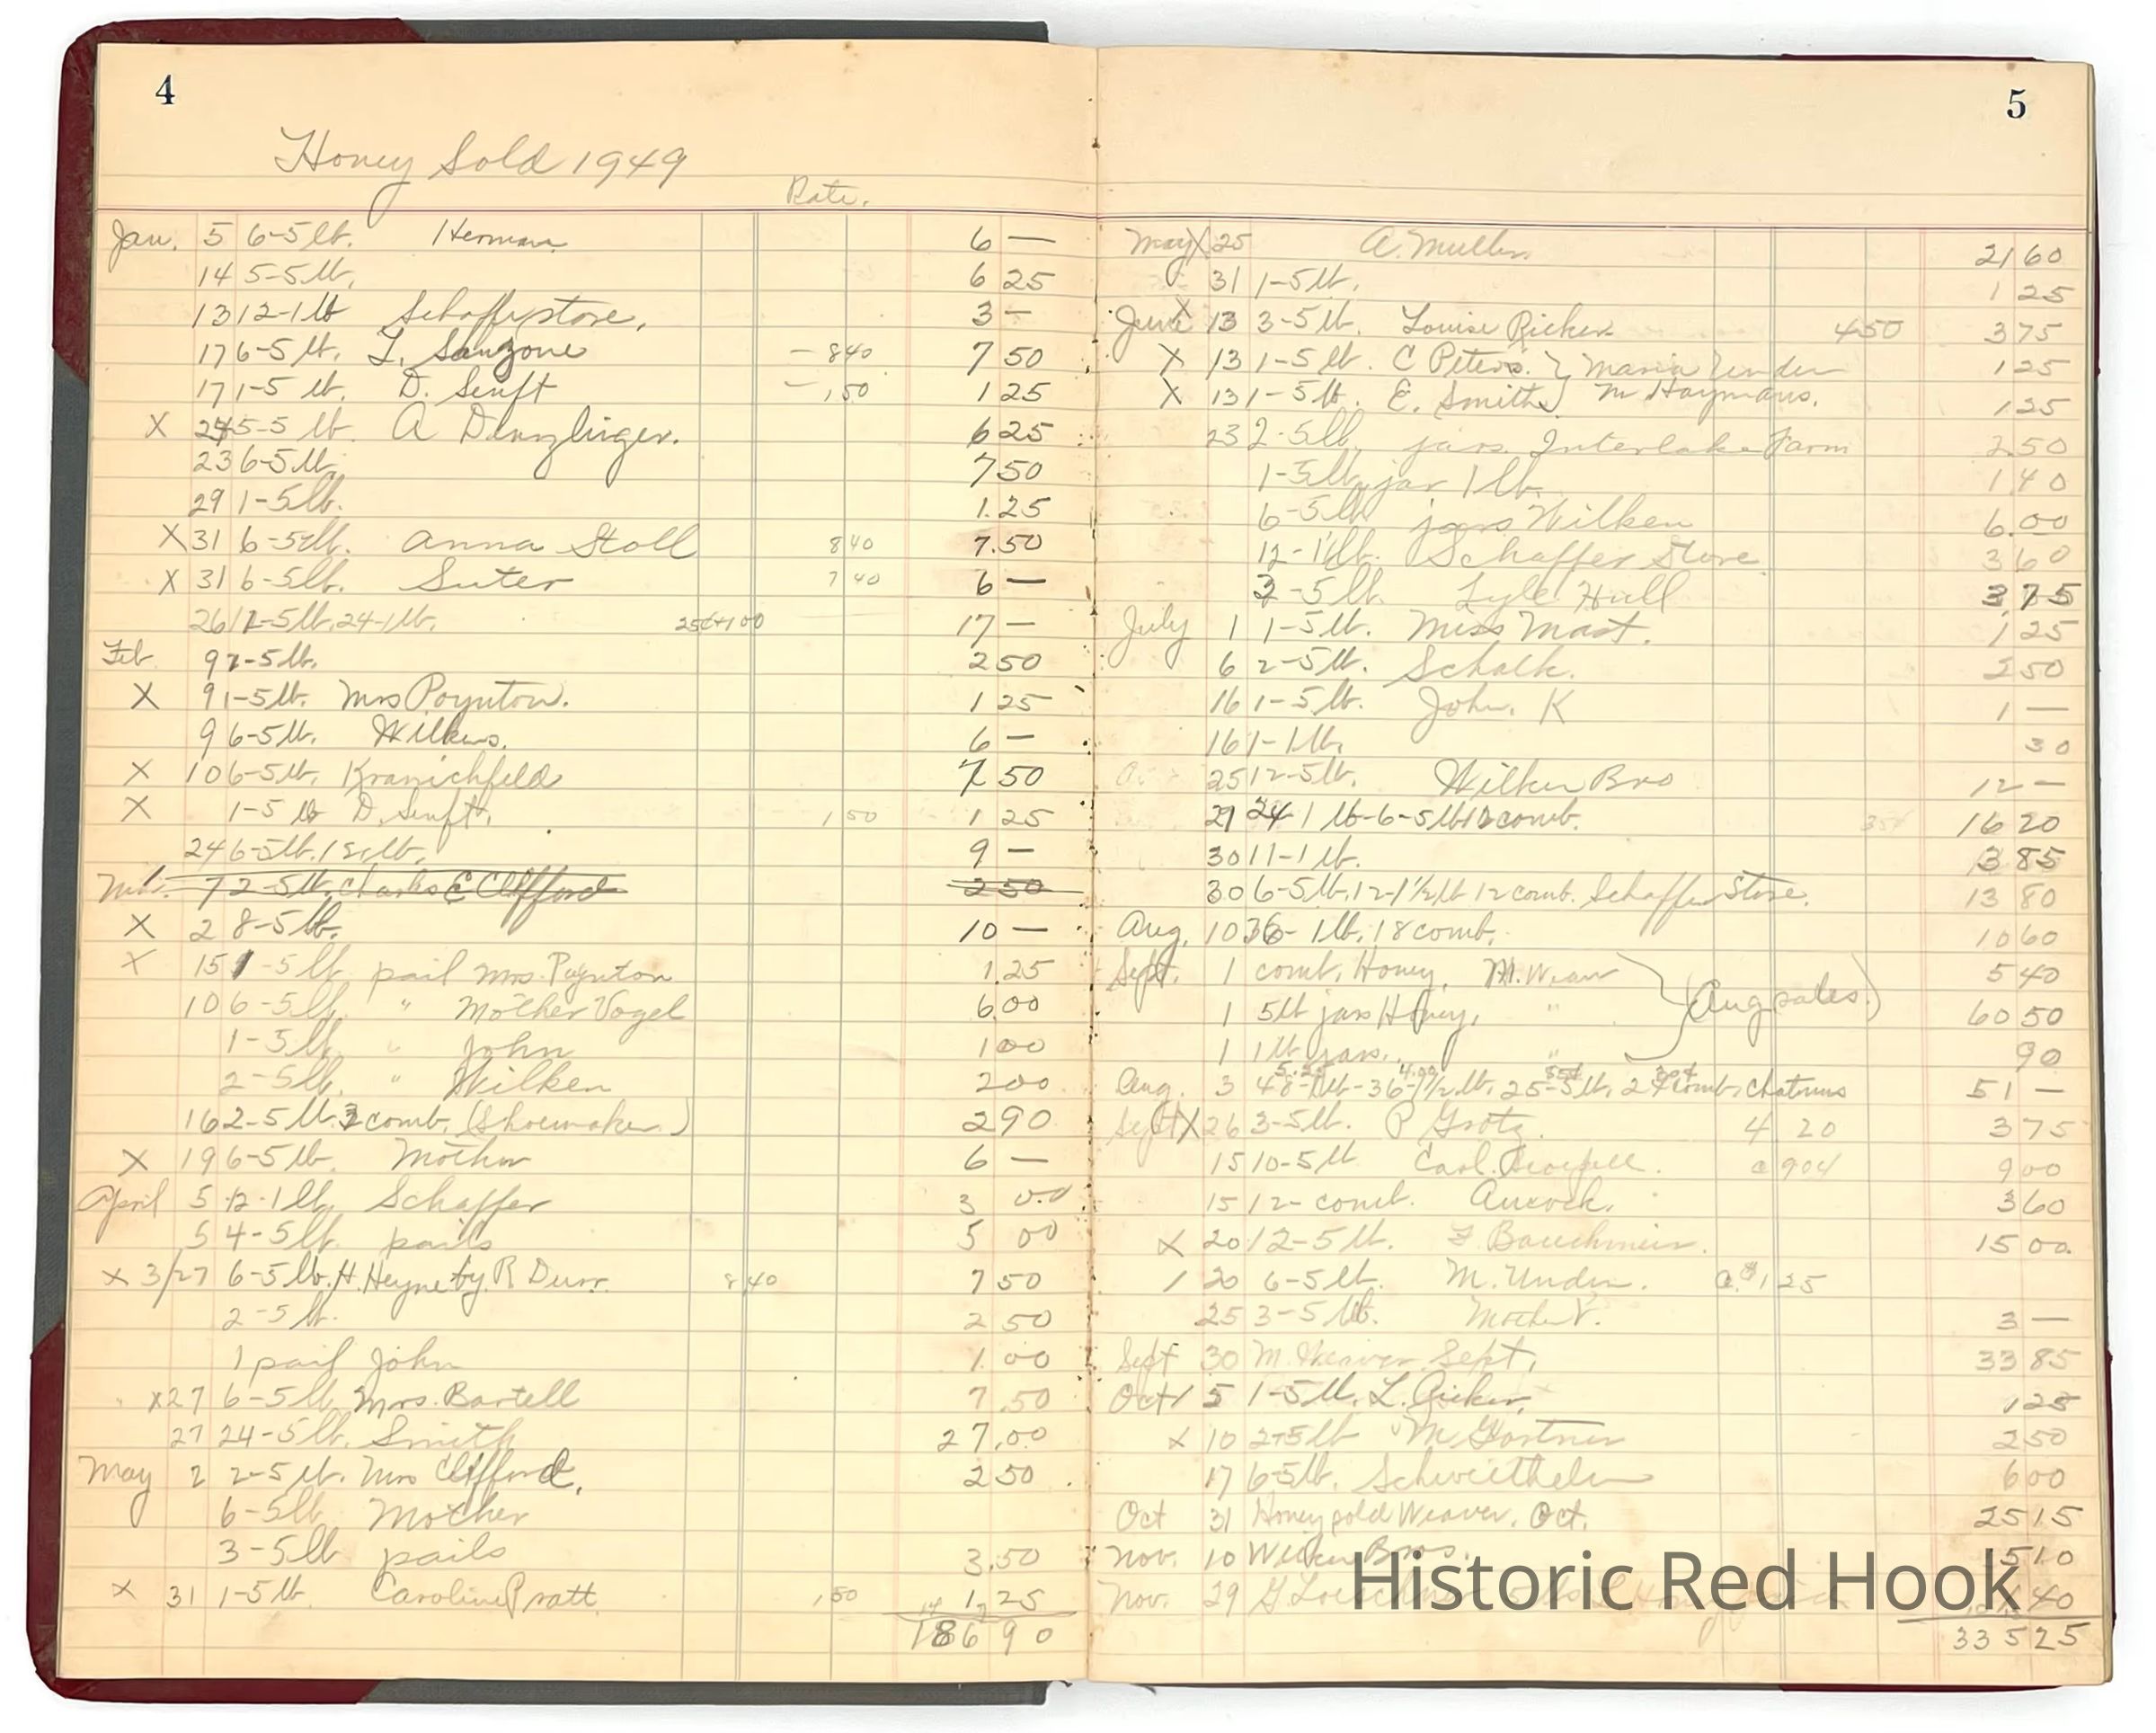 4
Honey Sold 1949
Rate.
Jan. 5 6-5 lb. Herman 6 —
14 5-5 lb. 6 25
13 12-1 lb Schaffer store. 3 —
17 6-5 lb. L. Sanzone — 8 40 7 50
17 1-5 lb. D. Senft — 1,50 1 25
X 24 5-5 lb. A Denzlinger. 6 25
23 6-5 lb. 7 50
29 1-5 lb. 1.25
X 31 6-5 lb. Anna Stoll 8 40 7.50
X 31 6-5 lb. Suter 7 40 6 —
26 12-5 lb. 24-1 lb. 25¢+1 00 17 —
Feb. 9 2-5 lb. 2 50
X 9 1-5 lb. Mrs Poynton. 1 25
9 6-5 lb. Wilkens. 6 —
X 10 6-5 lb. Kranichfeld 7 50
X 1-5 lb D. Senft. 1,50 1 25
24 6-5 lb. 12-1 lb. 9 —
7 2-5 lb. Charles E Clifford 2 50
X 2 8-5 lb. 10 —
X 15 1-5 lb. pail Mrs. Poynton 1.25
10 6-5 lb. " Mother Vogel 6.00
1-5 lb. " John 1 00
2-5 lb. " Wilken 2 00
16 2-5 lb. 3 comb. (Shoemaker) 2 90
X 19 6-5 lb. Mother 6 —
April 5 12-1 lb. Schaffer 3 00
5 4-5 lb. pails 5 00
X 3/27 6-5 lb. H. Heyne by R Durr. 8 40 7 50
2-5 lb. 2 50
1 pail John 1.00
X 27 6-5 lb. Mrs. Bartell 7.50
27 24-5 lb. Smith 27.00
May 2 2-5 lb. Mrs Clifford. 2 50
6-5 lb Mother
3-5 lb pails 3.50
X 31 1-5 lb. Caroline Pratt 1,50 1 25
186 90
5
May X 25 A. Muller. 21 60
31 1-5 lb. 1 25
June X 13 3-5 lb. Louise Ricker. 4 50 3 75
X 13 1-5 lb. C Peters. } Maria Under 1 25
X 13 1-5 lb. E. Smith } M Haymans. 1 25
23 2-5 lb. jars. Interlake Farm 2.50
1-5 lb. jar 1 lb. 1 40
6-5 lb. jars Wilken 6.00
12-1 lb. Schaffer Store. 3 60
3-5 lb. Lyle Hull 3,75
July 1 1-5 lb. Miss Mast. 1 25
6 2-5 lb. Schalk. 2 50
16 1-5 lb. John. K 1 —
16 1-1 lb. 30
25 12-5 lb. Wilken Bro 12 —
29 24-1 lb-6-5 lb 12 comb. 35¢ 16 20
30 11-1 lb. 3 85
30 6-5 lb. 12-1 1/2 lb 12 comb. Schaffer Store. 13 80
Aug. 10 36-1 lb. 18 comb. 10 60
Sept. 1 comb. Honey. M. Weaver } (Aug sales.) 5 40
1 5 lb jars Honey. " 60 50
1 1 lb jars. " 90
Aug. 3 48-1 lb-36-1 1/2 lb. 25-5 lb. 24 comb. Chatmus 51 —
Sept X 26 3-5 lb. P Grotz. 4 20 3 75
15 10-5 lb Carl @ 90¢ 9 00
15 12-comb. Aucock. 3 60
X 20 12-5 lb. F Bauchmeir. 15 00
/ 20 6-5 lb. M. Under. @ $1 25
25 3-5 lb. Mother V. 3 —
Sept 30 M. Weaver Sept. 33 85
Oct / 5 1-5 lb. L. Ricker. 1 25
X 10 2-5 lb M Gartner 2 50
17 6-5 lb. Schwiethelm 6 00
Oct 31 Honey sold Weaver. Oct. 25 15
Nov. 10 Wilken Bros. 5 10
Nov. 29 G 40
335 25
Historic Red Hook